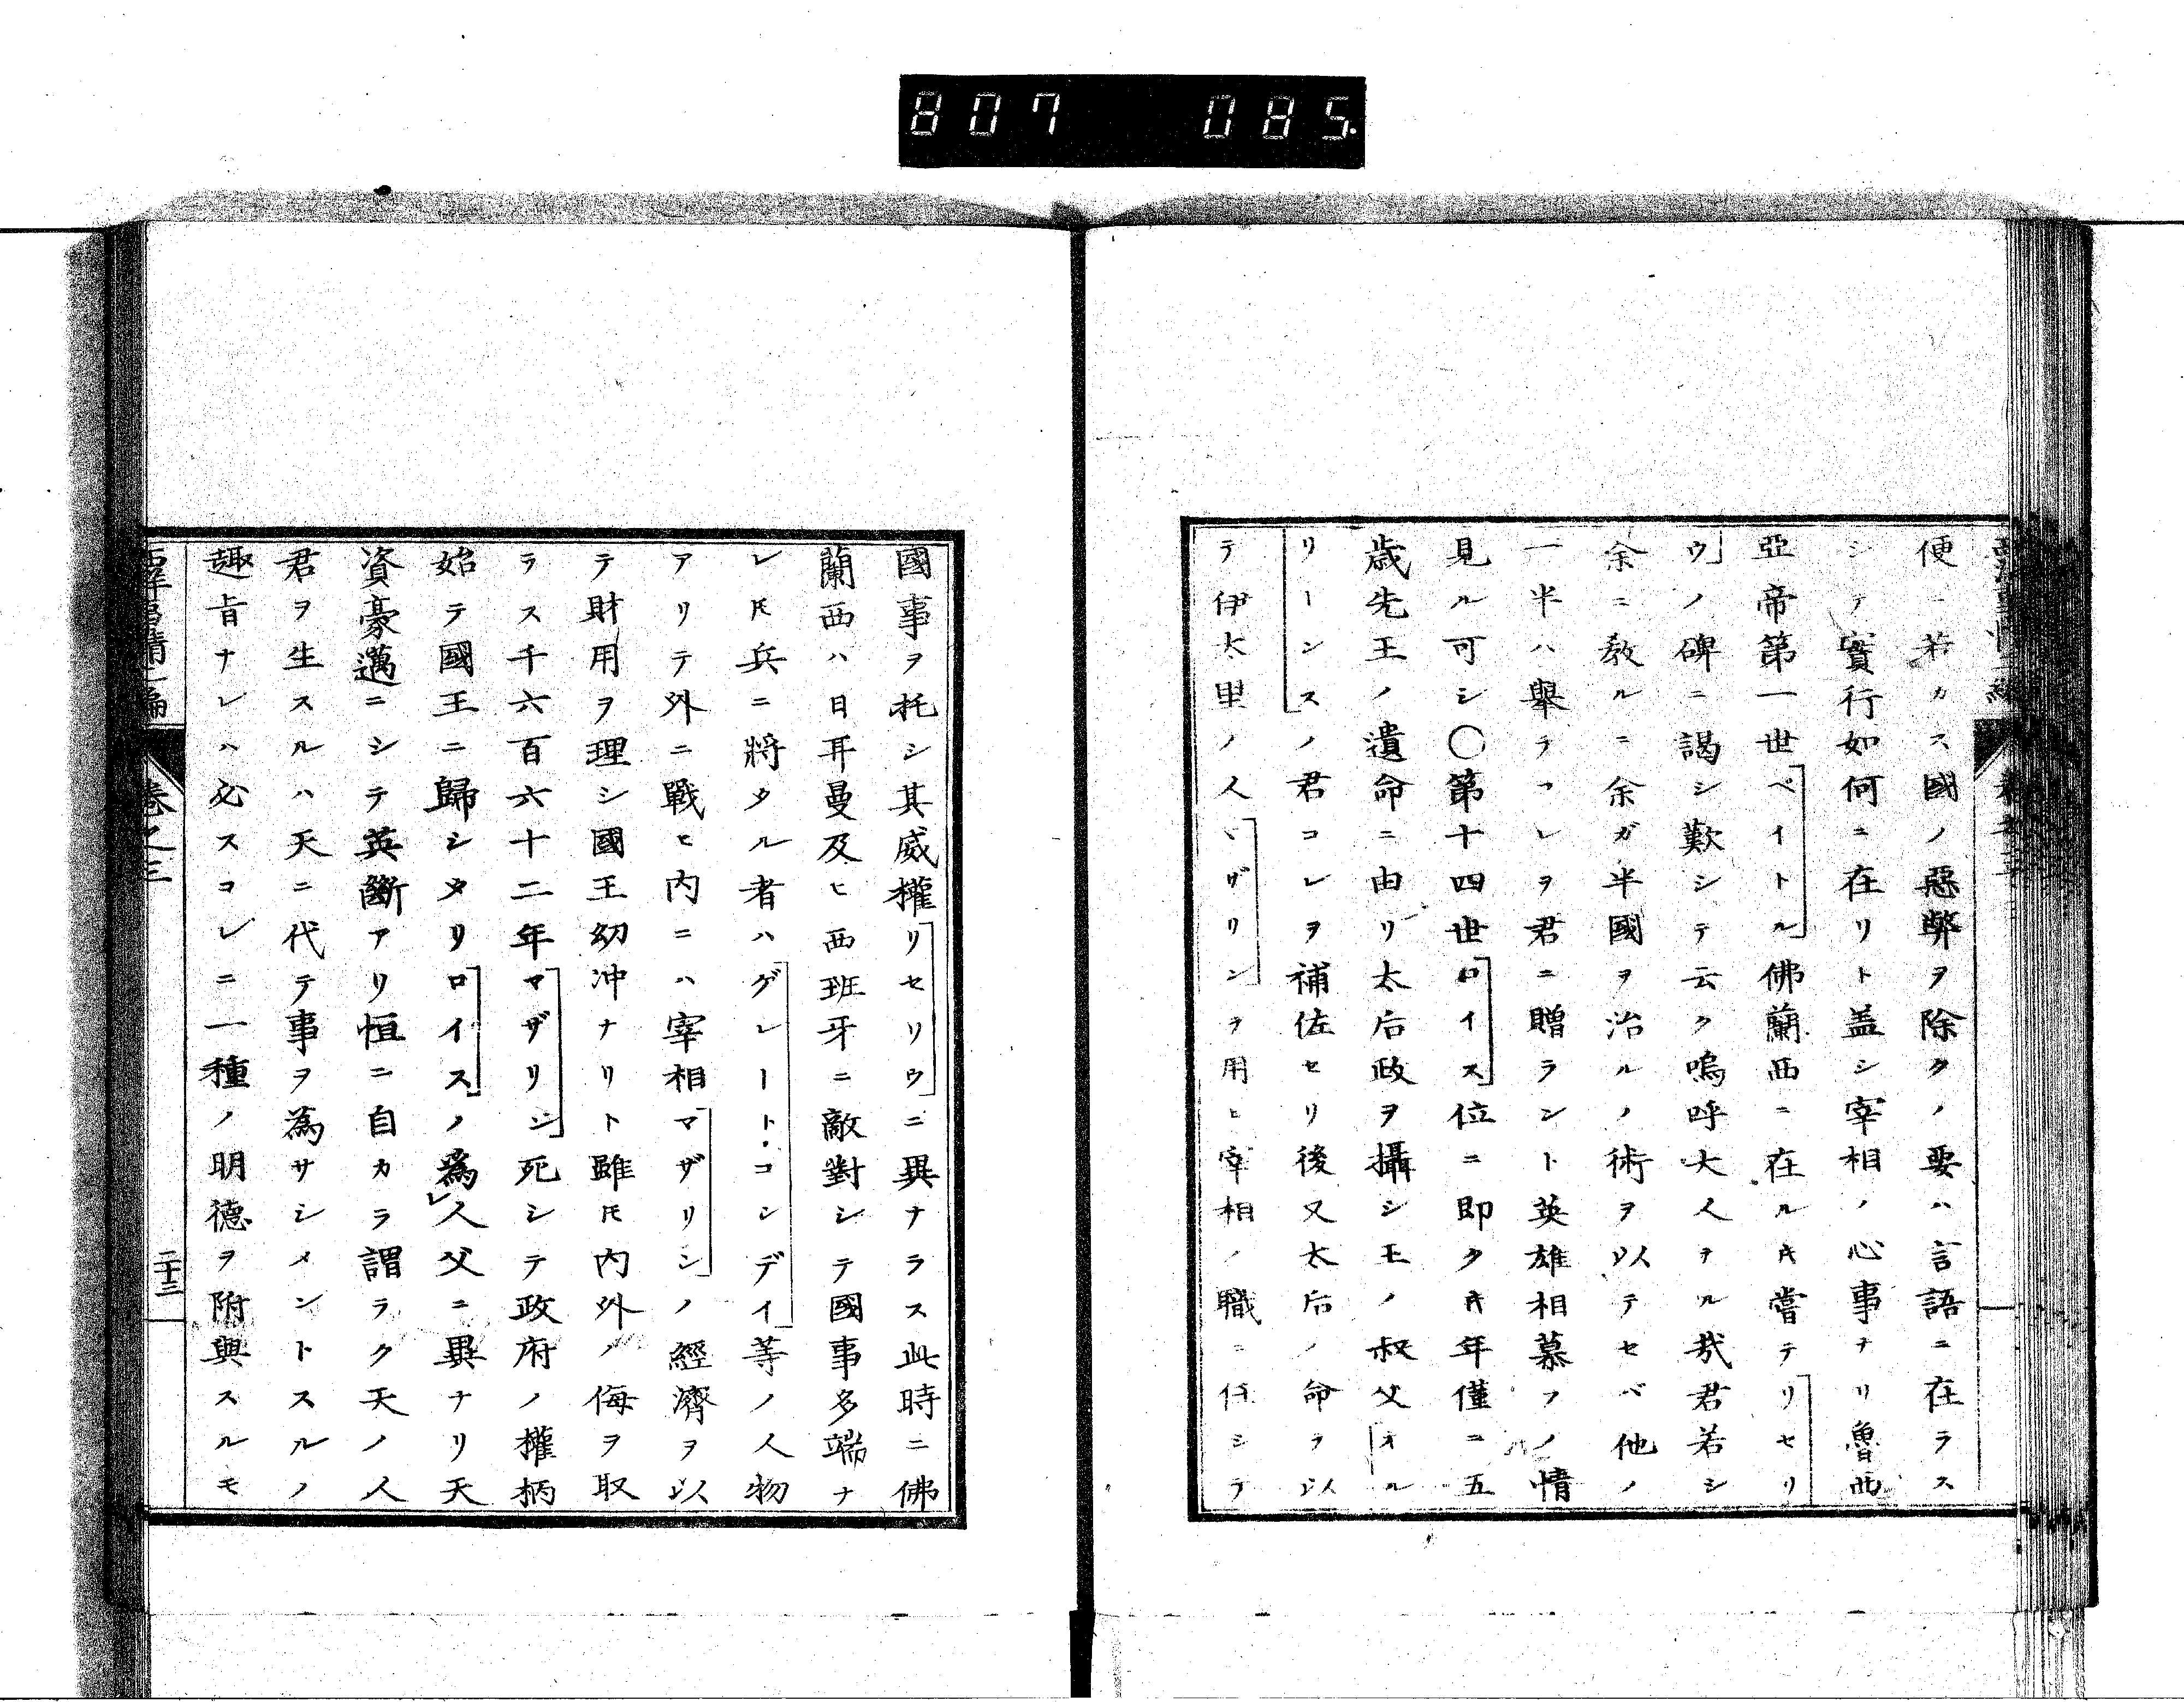 807 085.
便ニ若カス國ノ惡弊ヲ除クノ要ハ言語ニ在ラス
シテ實行如何ニ在リト盖シ宰相ノ心事ナリ魯西
亞帝第一世ペイトル佛蘭西ニ在ル𪜈嘗テリセリ
ウノ碑ニ謁シ歎シテ云ク嗚呼大人ヲル哉君若シ
余ニ教ルニ余ガ半國ヲ治ルノ術ヲ以テセバ他ノ
一半ハ舉テコレヲ君ニ贈ラント英雄相慕フノ情
見ル可シ〇第十四世ロイス位ニ即ク𪜈年僅ニ五
歳先王ノ遺命ニ由リ太后政ヲ攝シ王ノ叔父オル
リーンスノ君コレヲ補佐セリ後又太后ノ命ヲ以
テ伊太里ノ人マザリンヲ用ヒ宰相ノ職ニ任シテ
國事ヲ托シ其威權リセリウニ異ナラス此時ニ佛
蘭西ハ日耳曼及ヒ西班牙ニ敵對シテ國事多端ナ
レ𪜈兵ニ將タル者ハグレート・コンデイ等ノ人物
アリテ外ニ戰ヒ内ニハ宰相マザリンノ經濟ヲ以
テ財用ヲ理シ國王幼冲ナリト雖𪜈内外ノ侮ヲ取
ラス千六百六十二年マザリン死シテ政府ノ權柄
始テ國王ニ歸シタリロイスノ爲レ人父ニ異ナリ天
資豪邁ニシテ英斷アリ恒ニ自カラ謂ラク天ノ人
君ヲ生スルハ天ニ代テ事ヲ為サシメントスルノ
趣旨ナレハ必スコレニ一種ノ明德ヲ附與スルモ
西洋事情二編 卷之三 二十三